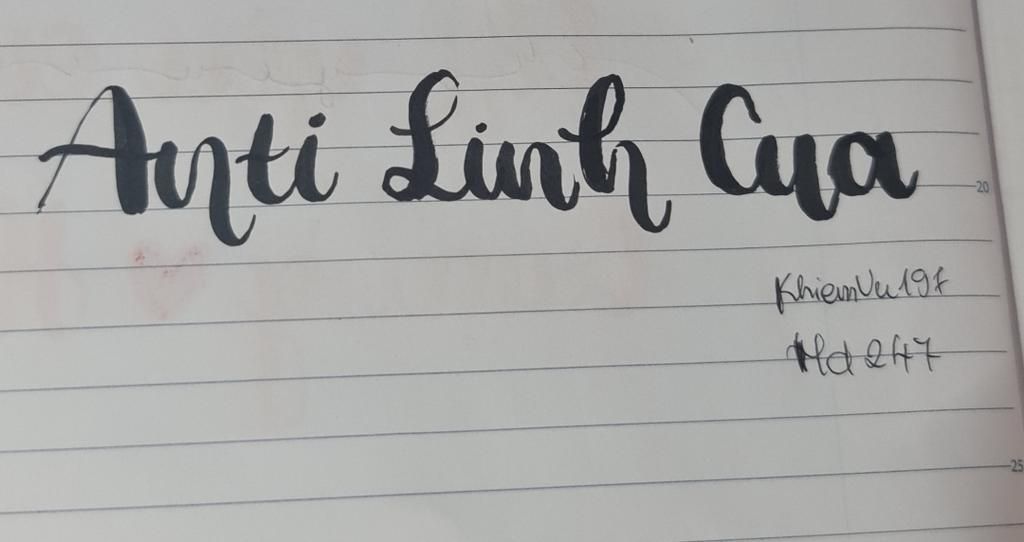 Anti Linh Cua
20
KhiemVu197
Hd 247
25